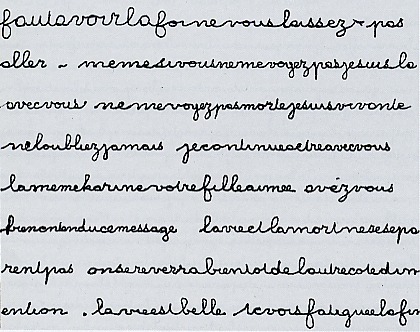 fautavoirlafoinevouslaissez-pas
aller - memesivousnemevoyezpasjesuisla
avecvous nemevoyezpasmortejesuisvivante
neloubliezjamais jecontinueaetreavecvous
lamemekarinevotrefilleaimee avézvous
bienentenducemessage lavieetlamortnesesepa
rentpas onsereverrabientotdelautrecotedun
ention . lavieestbelle